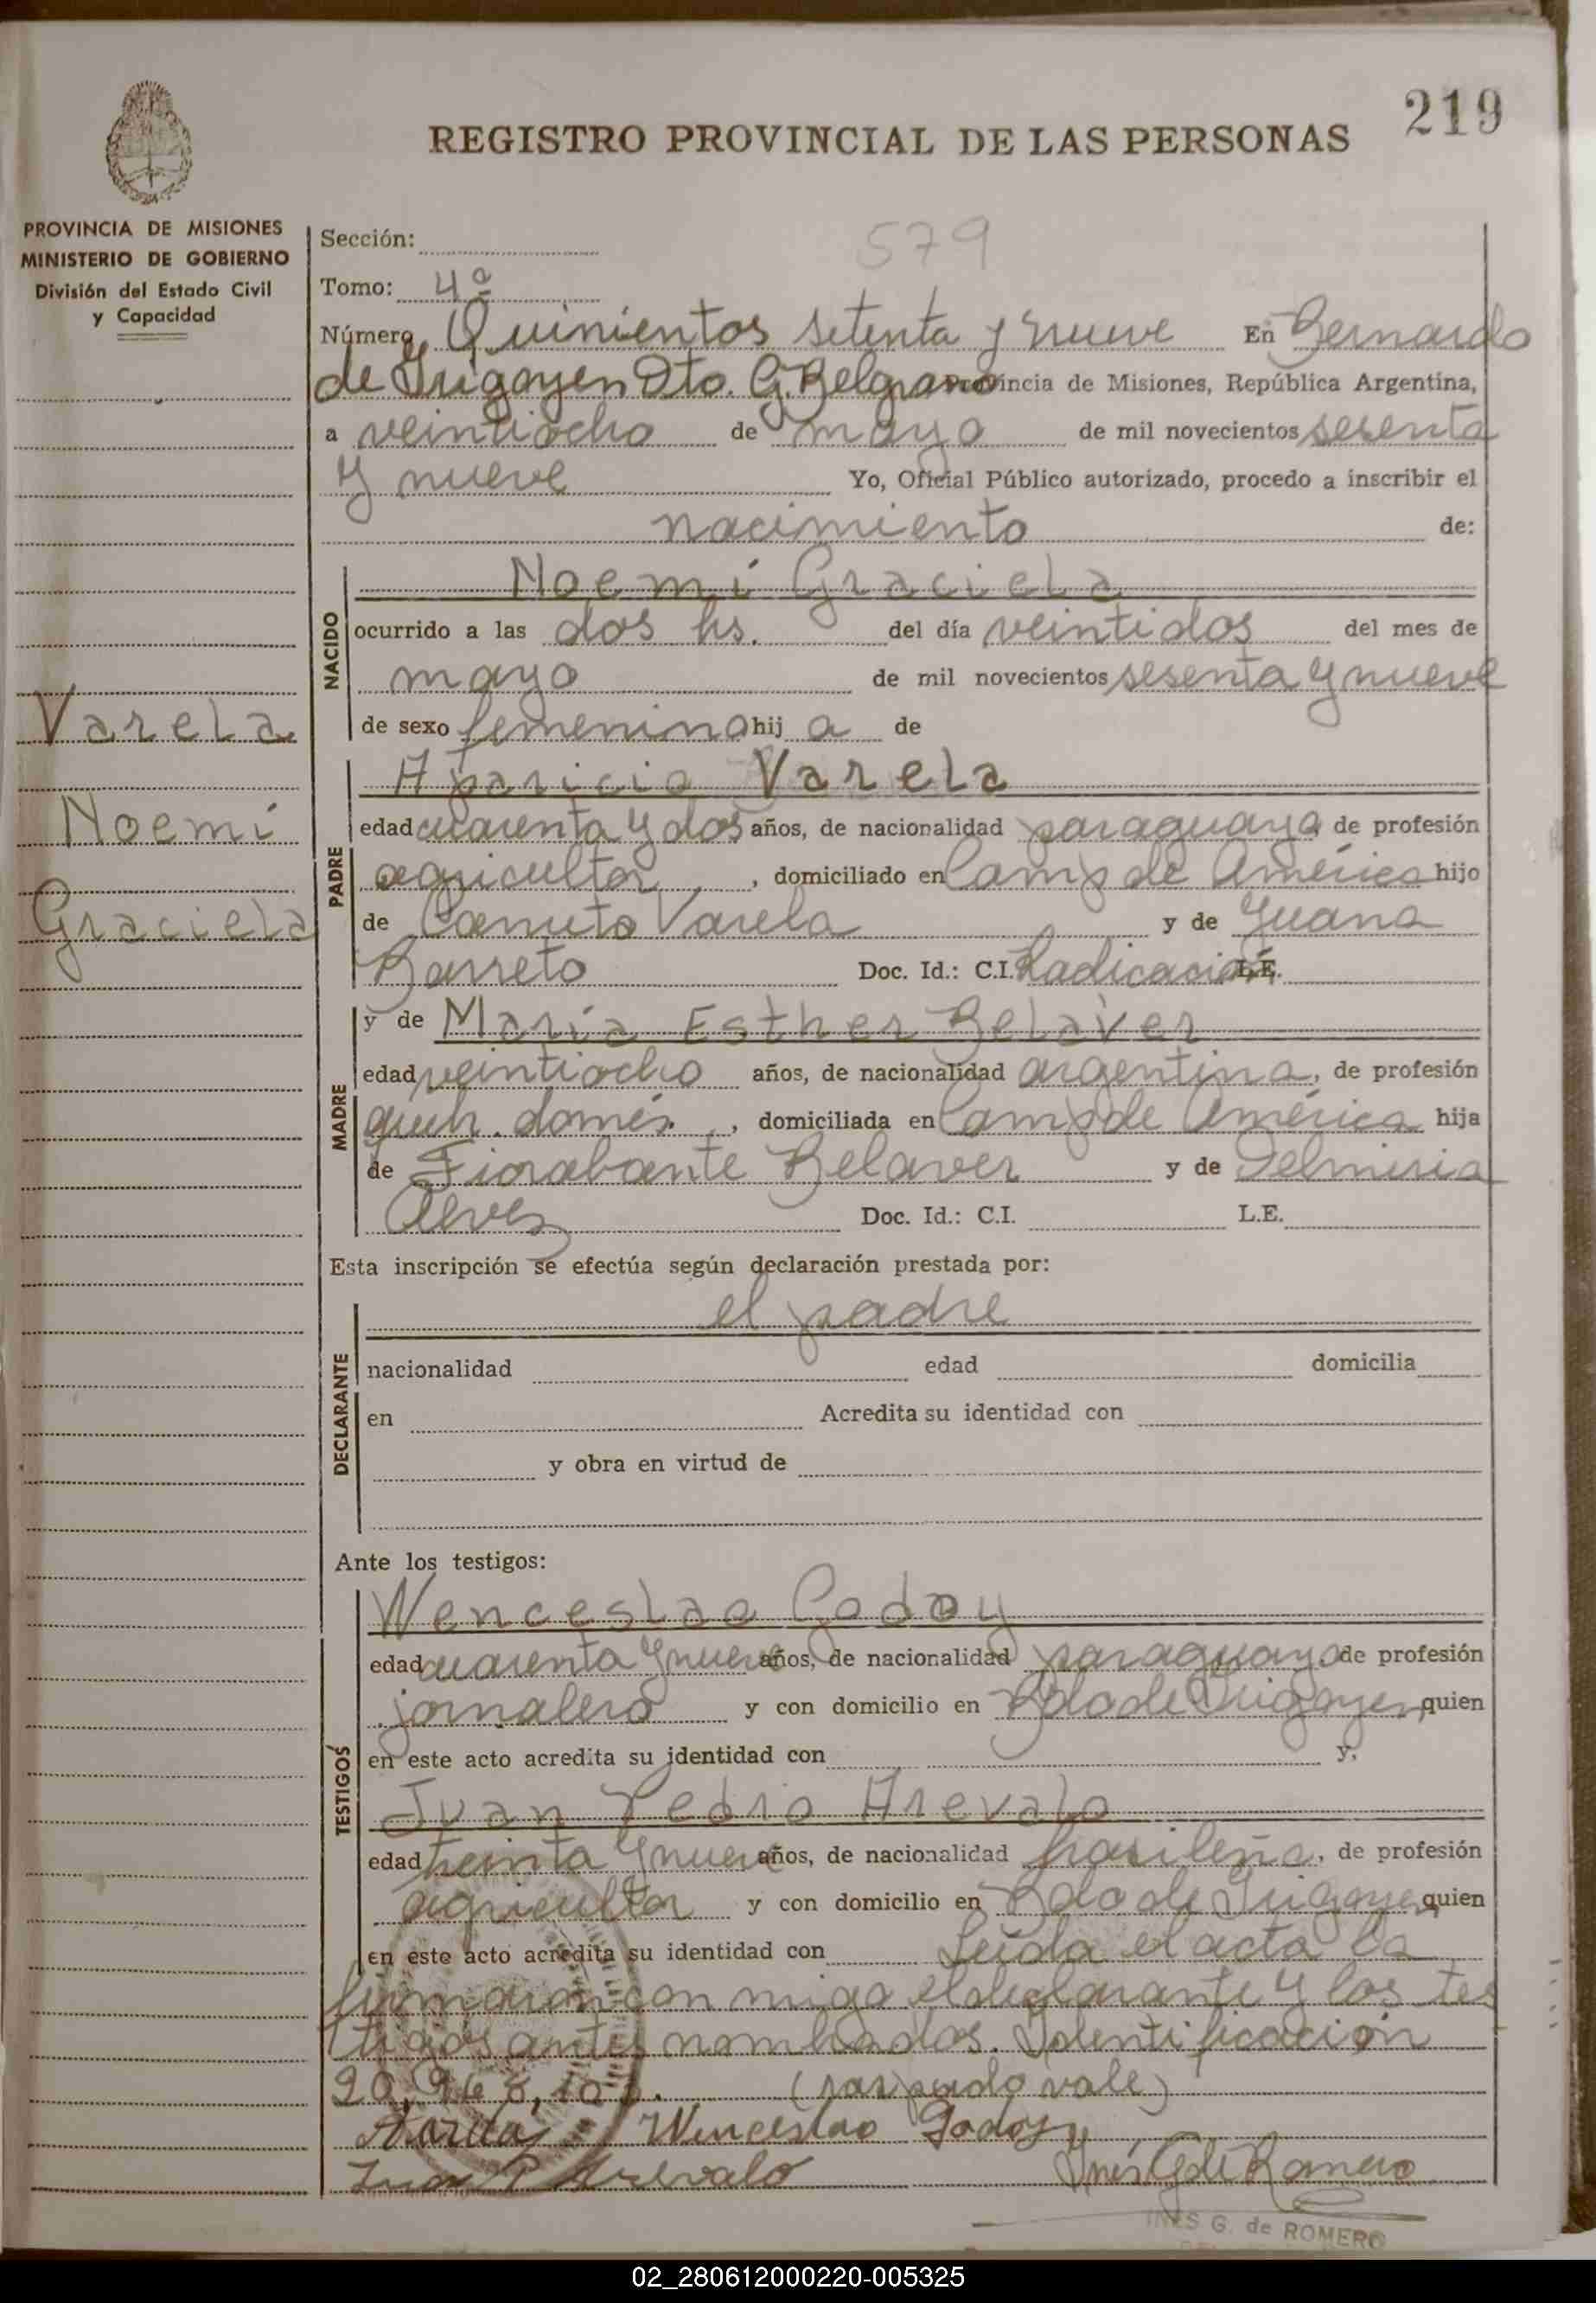 219
REGISTRO PROVINCIAL DE LAS PERSONAS
PROVINCIA DE MISIONES
MINISTERIO DE GOBIERNO
División del Estado Civil
y Capacidad
579
Sección:
Tomo: 4º
Número Quinientos setenta y nueve En Bernardo
de Irigoyen Dto. G. Belgrano Provincia de Misiones, República Argentina,
a veintiocho de mayo de mil novecientos sesenta
y nueve Yo, Oficial Público autorizado, procedo a inscribir el
nacimiento de:
Varela
Noemí
Graciela
NACIDO
Noemí Graciela
ocurrido a las dos hs. del día veintidos del mes de
mayo de mil novecientos sesenta y nueve
de sexo femenino hij a de
PADRE
Aparicio Varela
edad cuarenta y dos años, de nacionalidad paraguaya, de profesión
agricultor, domiciliado en Camp de América hijo
de Canuto Varela y de Juana
Barreto Doc. Id.: C.I. Radicación L.E.
MADRE
y de María Esther Belaver
edad veintiocho años, de nacionalidad argentina, de profesión
queh. domés., domiciliada en Camp de América hija
de Fiorabante Belaver y de
Alves Doc. Id.: C.I. L.E.
Esta inscripción se efectúa según declaración prestada por:
DECLARANTE
el padre
nacionalidad edad domicilia
en Acredita su identidad con
y obra en virtud de
Ante los testigos:
TESTIGOS
Wenceslao Godoy
edad cuarenta y nueve años, de nacionalidad paraguaya de profesión
jornalero y con domicilio en Bdo de Irigoyen, quien
en este acto acredita su identidad con y,
Juan Pedro Arevalo
edad treinta y nueve años, de nacionalidad brasileña, de profesión
agricultor y con domicilio en Bdo de Irigoyen, quien
en este acto acredita su identidad con Leída el acta la
firmaron con migo el declarante y los tes
tigos antes nombrados. Identificación
(raspado vale)
Wenceslao Godoy
Juan P Arevalo Inés G de Romero
INES G. de ROMERO
02_280612000220-005325